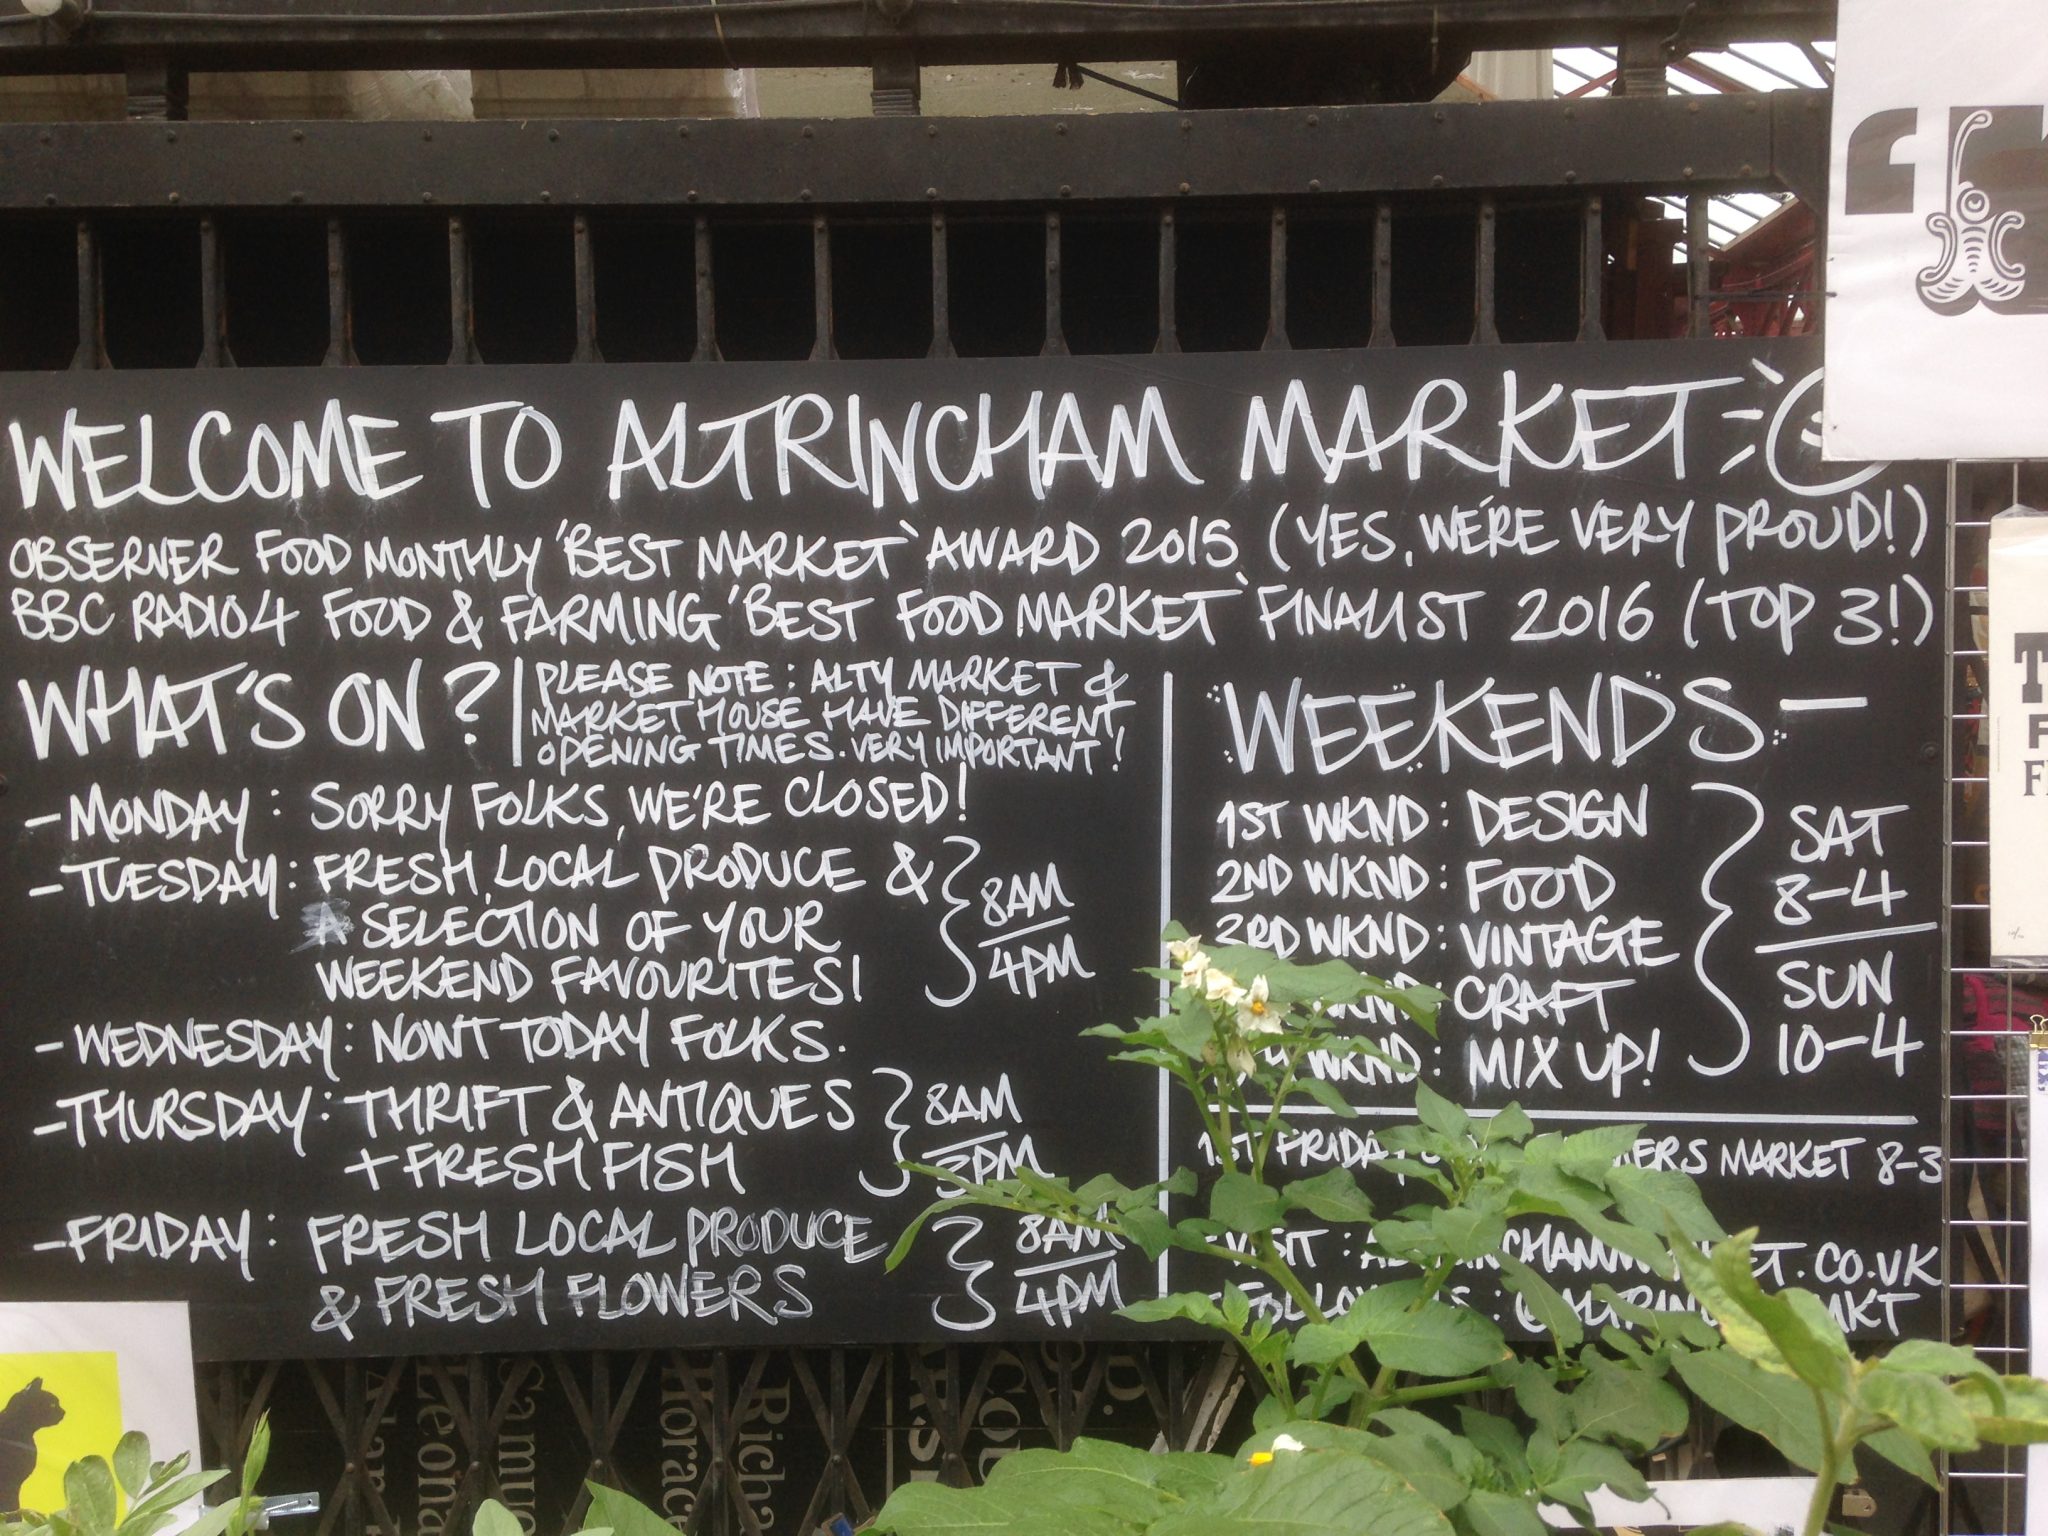 WELCOME TO ALTRINCHAM MARKET
OBSERVER FOOD MONTHLY 'BEST MARKET' AWARD 2015 (YES, WE'RE VERY PROUD!)
BBC RADIO 4 FOOD & FARMING 'BEST FOOD MARKET' FINALIST 2016 (TOP 3!)
WHAT'S ON?
PLEASE NOTE: ALTY MARKET &
MARKET HOUSE HAVE DIFFERENT
OPENING TIMES. VERY IMPORTANT!
- MONDAY: SORRY FOLKS, WE'RE CLOSED!
- TUESDAY: FRESH, LOCAL PRODUCE &
A SELECTION OF YOUR
WEEKEND FAVOURITES!
8AM
4PM
- WEDNESDAY: NOWT TODAY FOLKS.
- THURSDAY: THRIFT & ANTIQUES
+ FRESH FISH
8AM
3PM
- FRIDAY: FRESH LOCAL PRODUCE
& FRESH FLOWERS
8AM
4PM
WEEKENDS -
1ST WKND: DESIGN
2ND WKND: FOOD
3RD WKND: VINTAGE
WKND: CRAFT
WKND: MIX UP!
SAT
8-4
SUN
10-4
1ST FRIDAY MARKET 8-3
VISIT: .CO.UK
Samu
Leona
Richa
Horace